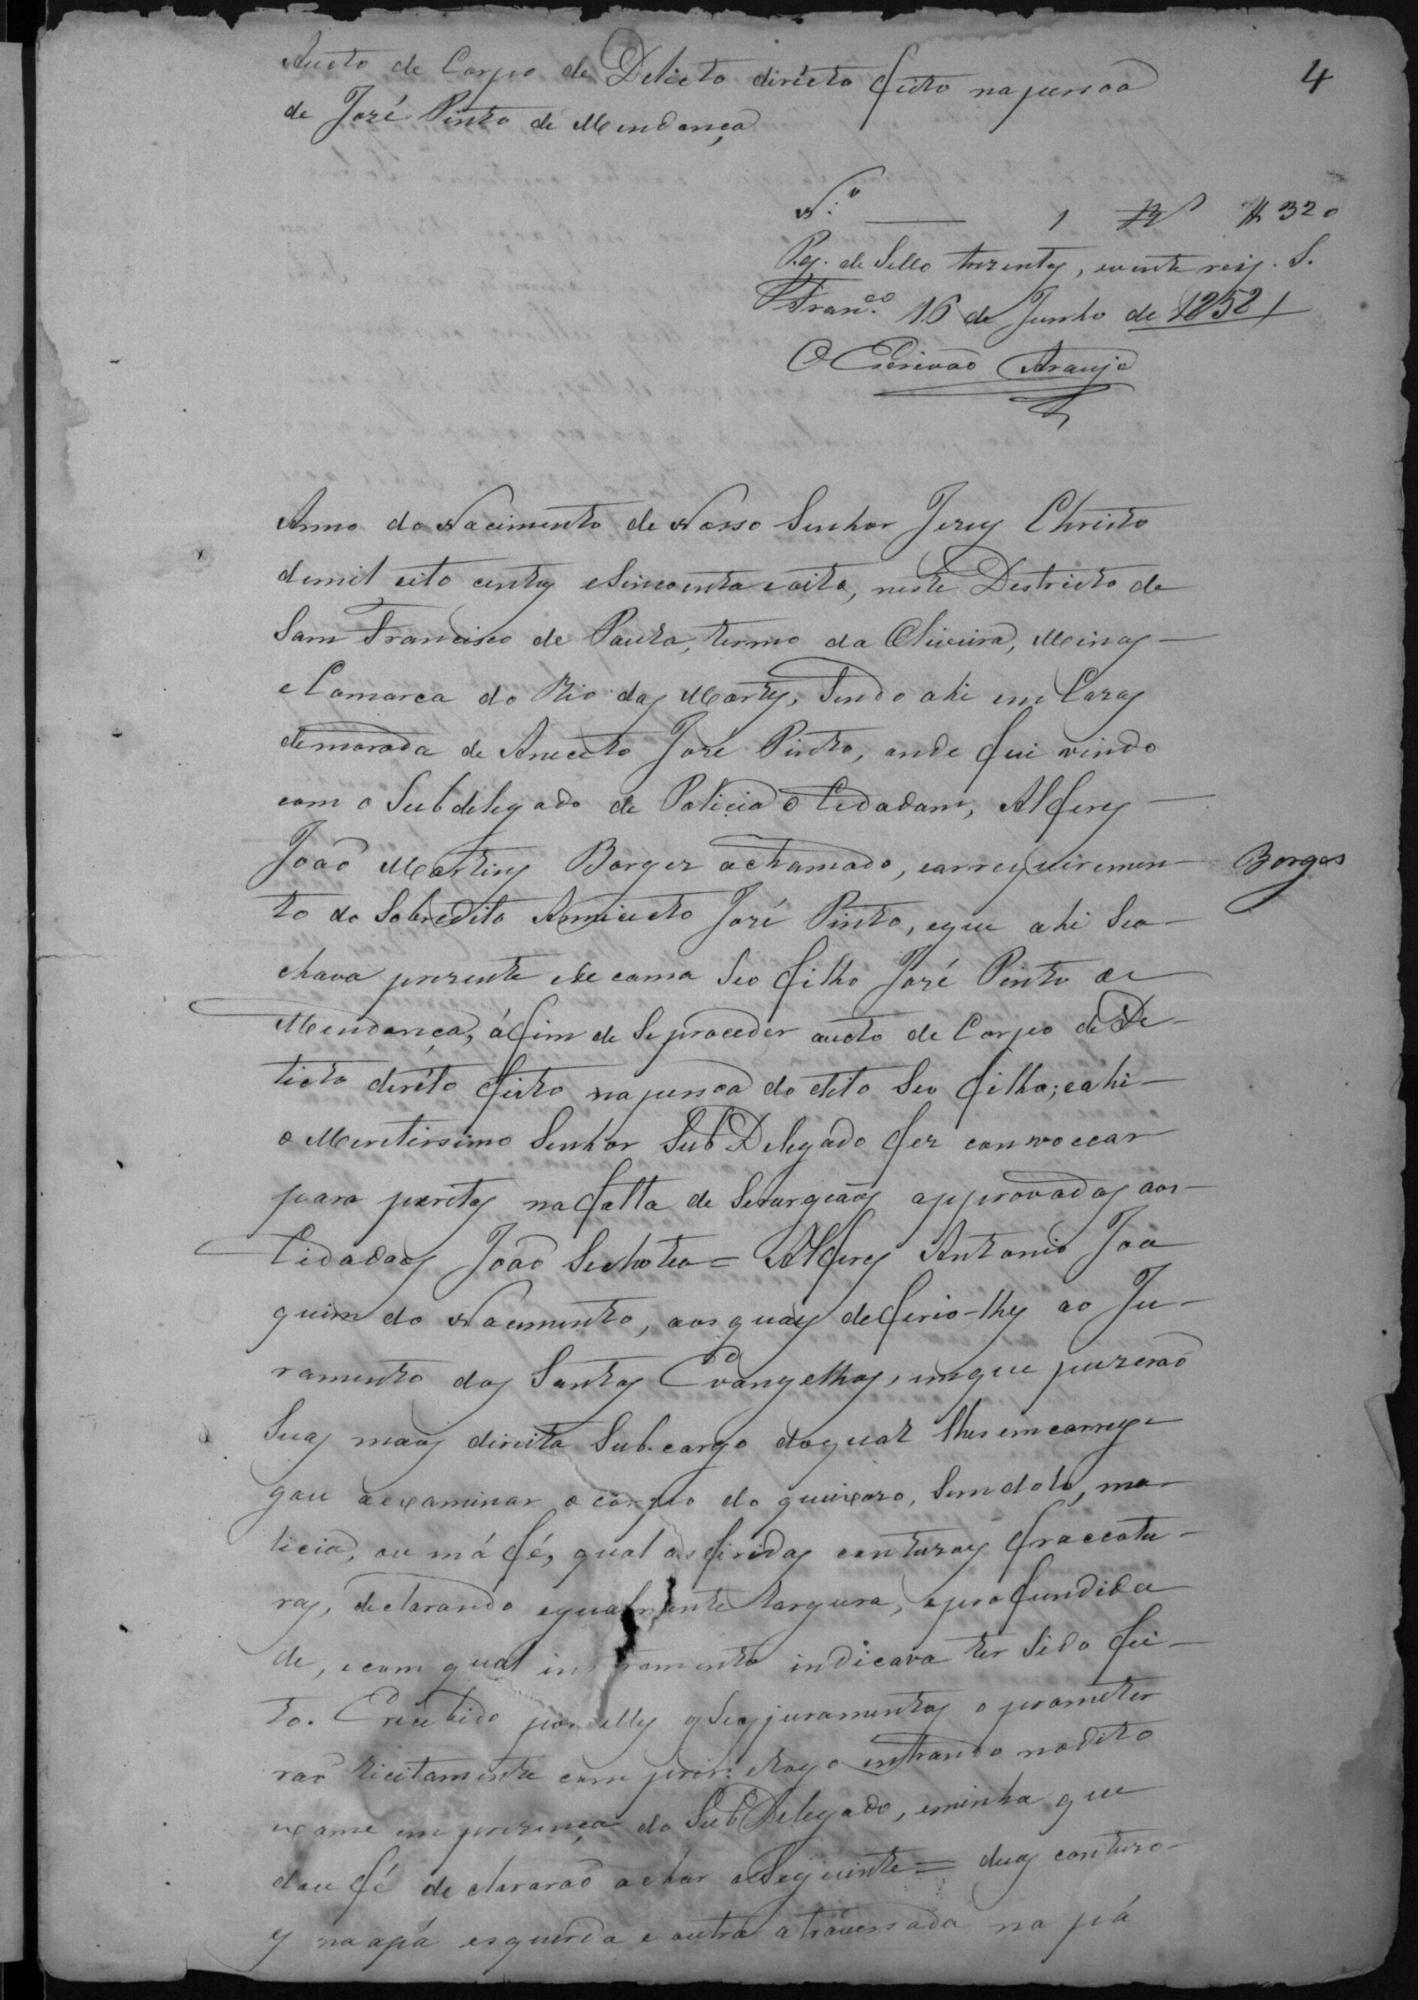 Aucto de Corpo de Delicto dirécto feito napessoa
de José Pinto de Mendonça
4
N.º 1 Rs 320
Pg. de Sello trezentos, evinte reis. S.
Fran.co 16 de Junho de 1858
O Escrivão Araujo
Anno do Nacimento de Nosso Senhor Jezus Christo
demil oito centos eSincoenta eoito, neste Destricto de
Sam Francisco de Paula, termo da Oliveira, Minas
eComarca do Rio das Mortes, Sendo ahi em Cazas
demorada de Aniceto José Pinto, onde fui vindo
com o Subdelegado de Policia o Cidadam, Alferes
João Martins Borges achamado, earrequerimen
Borges
to do Sobredito Anniceto José Pinto, eque ahi Sea-
chava prezente ede cama Seo filho José Pinto de
Mendonça, áfim de Seproceder aucto de Corpo de De-
licto diréto feito napessoa do dito Seo filho; eahi
o Meretissimo Senhor SubDelegado fez convoccar
para peritos nafalta de Serurgiaõs approvados aos
Cidadaõs João = Alferes Antonio Joa
quim do Nacimento, aosquaes deferio-lhes ao Ju-
ramento dos Santos Evangelhos, emque puzeraõ
Suas maõs direita Sub-cargo doqual lhes emcarre-
gou aexaminar o corpo do queixozo, Semdolo, ma-
licia, ou má fé, qual asfiridas contuzas fraccatu-
ras, declarando egualmente largura, eprofundida
de, ecom qual instromento indicava ter Sido fei-
to. Erecebido por elles oSeojuramentos oprometer
raõ licitamente comprir: elogo entrando nodito
exame em prezença do SubDelegado, eminha que
dou fé declararaõ achar oSeguinte = duas contuzo-
es naapá esquerda e outra atravessada na pá